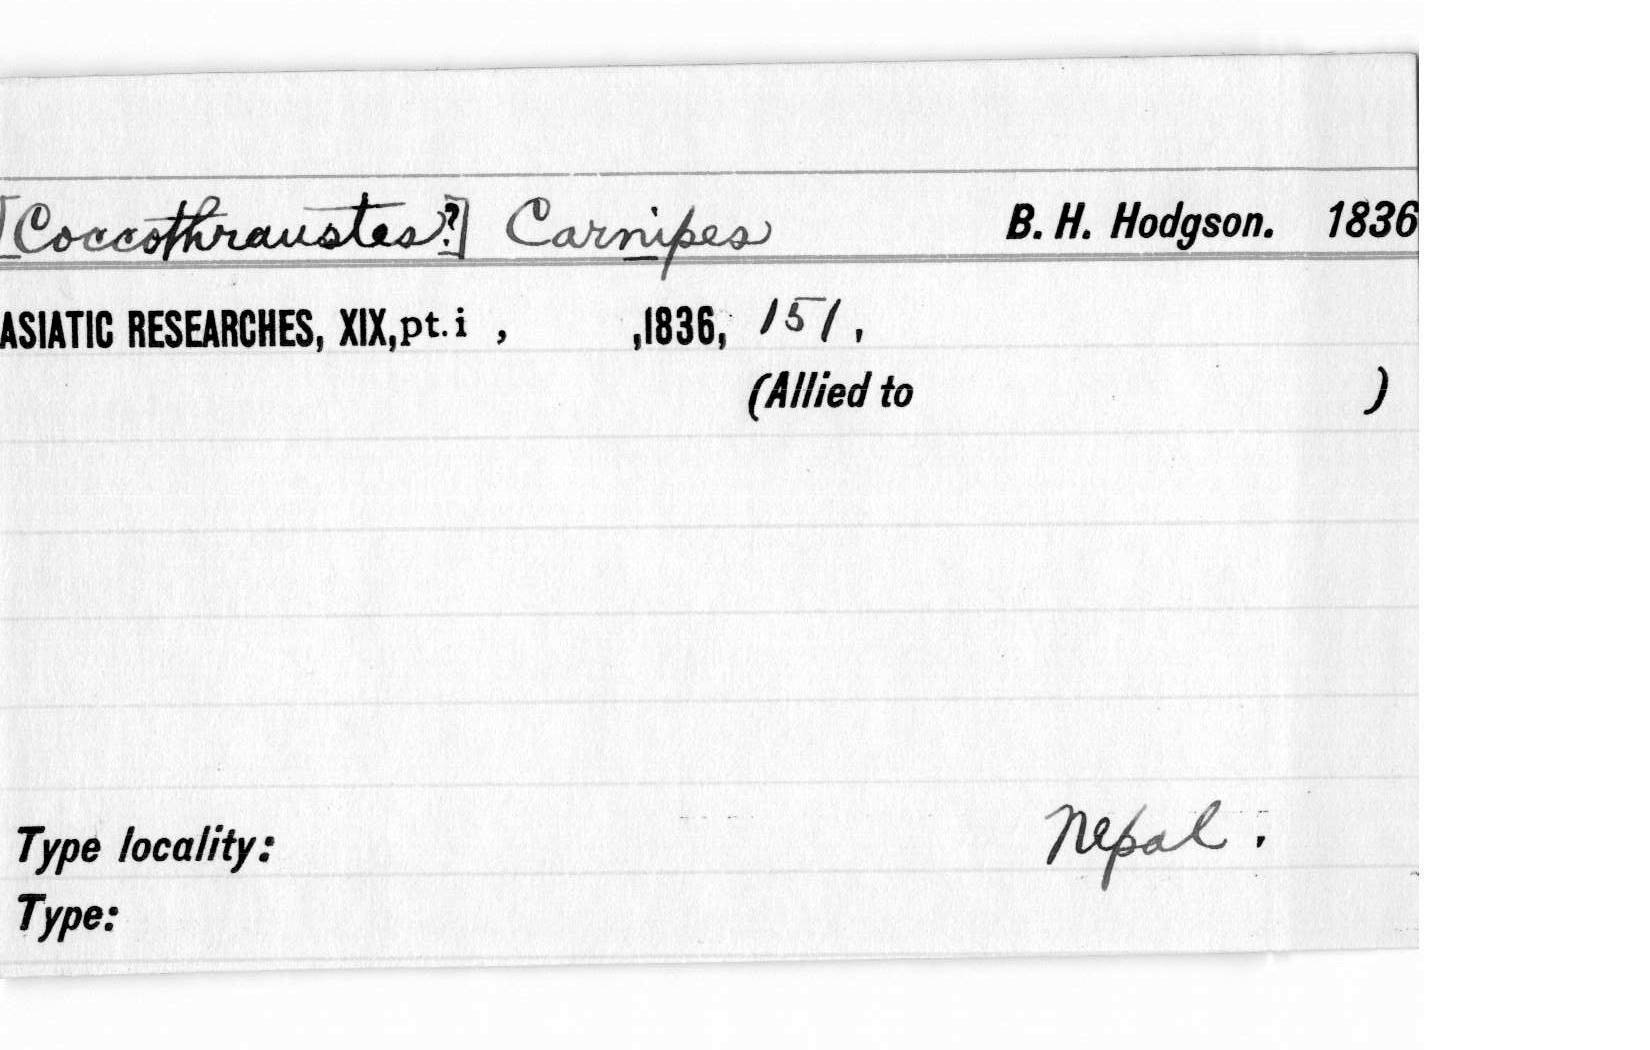 [Coccothraustes?] Carnipes B. H. Hodgson. 1836
ASIATIC RESEARCHES, XIX,pt.i , ,1836, 151,
(Allied to )
Type locality: Nepal.
Type: